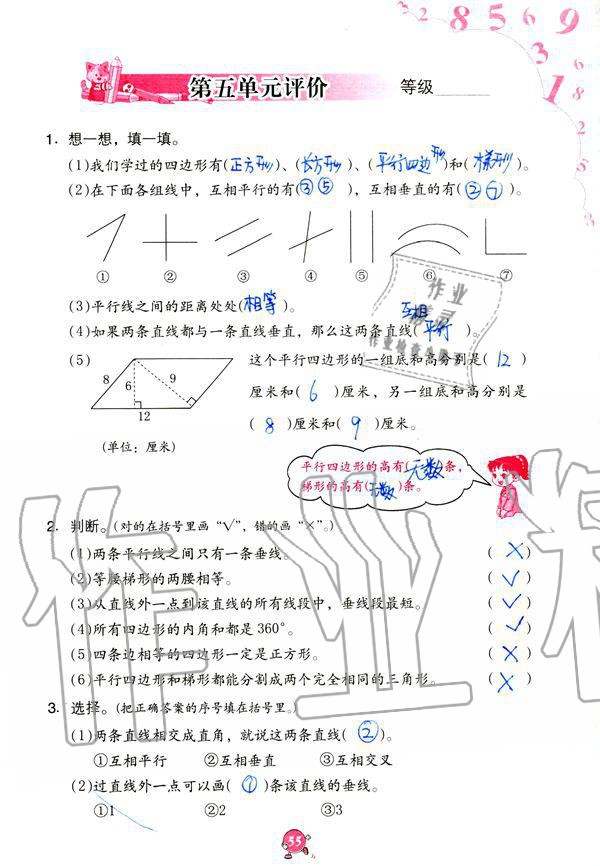 3 2 8 5 6 9
3 1 6 1 8 2 5 3
第五单元评价 等级
1. 想一想，填一填。
(1)我们学过的四边形有(正方形)、(长方形)、(平行四边形)和(梯形)。
(2)在下面各组线中，互相平行的有(③⑤)，互相垂直的有(②⑦)。
① ② ③ ④ ⑤ ⑥ ⑦
(3)平行线之间的距离处处(相等)。
(4)如果两条直线都与一条直线垂直，那么这两条直线(互相平行)。
(5) 这个平行四边形的一组底和高分别是(12)
8 6 9 厘米和(6)厘米，另一组底和高分别是
12 (8)厘米和(9)厘米。
(单位：厘米)
平行四边形的高有(无数)条，
梯形的高有(无数)条。
2. 判断。(对的在括号里画“√”，错的画“×”。)
(1)两条平行线之间只有一条垂线。 (×)
(2)等腰梯形的两腰相等。 (√)
(3)从直线外一点到该直线的所有线段中，垂线段最短。 (√)
(4)所有四边形的内角和都是360°。 (√)
(5)四条边相等的四边形一定是正方形。 (×)
(6)平行四边形和梯形都能分割成两个完全相同的三角形。 (×)
3. 选择。(把正确答案的序号填在括号里。)
(1)两条直线相交成直角，就说这两条直线(②)。
①互相平行 ②互相垂直 ③互相交叉
(2)过直线外一点可以画(①)条该直线的垂线。
①1 ②2 ③3
55
作业
作业检查
作业